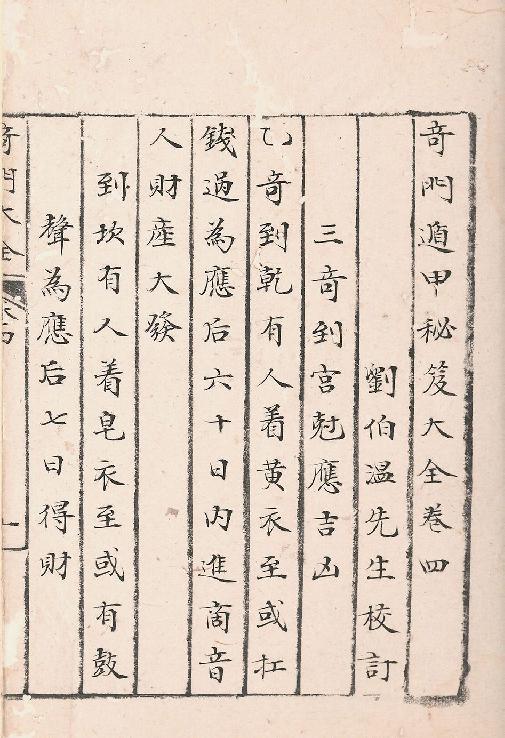 奇門遁甲秘笈大全卷四
劉伯溫先生校訂
三奇到宮尅應吉凶
乙奇到乾有人着黄衣至或扛
錢過為應后六十日内進商音
人財產大發
到坎有人着皂衣至或有鼓
聲為應后七日得財
奇門大全